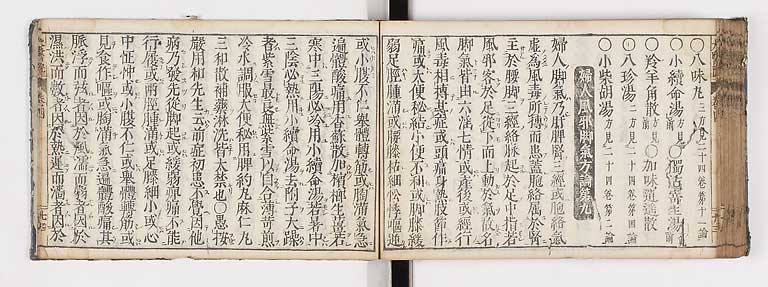 ○八味丸方見二十四卷第十一論
○小續命湯方見前○獨活寄生湯方見前
○羚羊角散方見前○加味逍遙散
○八珍湯方見二十四卷第四論
○小柴胡湯方見二十四卷第二論
婦人風邪脚氣方論第九
婦人脚氣乃肝脾腎三經或胞絡氣
虛爲風毒所搏而患蓋胞絡屬於腎
主於腰脚三經絡脉起於足中指若
風邪客於足從下而上動於氣故名
脚氣皆由六淫七情或產後或經行
風毒相搏其症或頭痛身熱肢節作
痛或大便秘結小便不利或脚膝緩
弱足脛腫滿或膝枯細心悸嘔逆
或小腹不仁擧體轉筋或胸滿氣急
遍體酸痛用香蘇散加檳榔生薑若
寒中三陽必冷用小續命湯若暑中
三陰必熱用小續命湯去附子大躁
者紫雪最良無紫雪以自合薄荷煎
冷水調服大便秘用脾約丸麻仁丸
三和散補藥淋洗皆大禁也○愚按
嚴用和先生云前症初患不覺因他
病乃發先從脚起或緩弱痺痛不能
行履或兩脛腫滿或足膝細小或心
中怔忡或小腹不仁或擧體轉筋或
見食作嘔或胸滿氣急遍體酸痛其
脉浮而弦者因於風濡而弱者因於
濕洪而數者因於熱遲而濇者因於